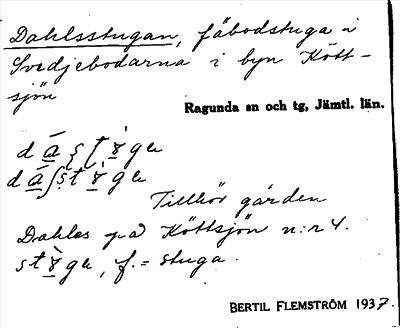 Dahlsstugan, fäbodstuga i
Svedjebodarna i byn Kött-
sjön
Ragunda sn och tg, Jämtl. län.
Tillhör gården
Dahles på Köttsjön n:r 4.
f. = stuga.
BERTIL FLEMSTRÖM 1937.